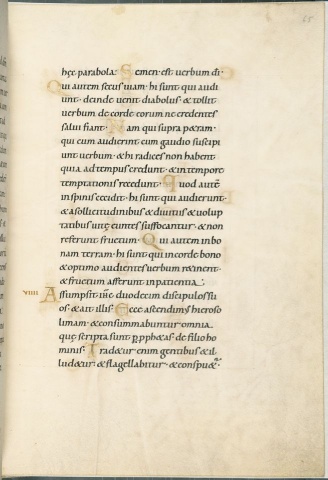 65
hęc parabola· Semen· est uerbum di·
Qui autem secus uiam· hi sunt qui audi
unt· deinde uenit diabolus· & tollit
uerbum de corde eorum ne credentes
salui fiant· Nam qui supra petram·
qui cum audierint cum gaudio suscipi
unt uerbum· & hi radices non habent
quia ad tempus credunt· & in tempore
temptationis recedunt· Quod autē
in spinis cecidit· hi sunt qui audierunt·
& a sollicitudinibus & diuitiis & uolup
tatibus uitę euntes suffocantur· & non
referunt fructum· Qui autem in bo
nam terram· hi sunt qui in corde bono
& optimo audientes uerbum retinent·
& fructum afferunt in patientia·
VIIII Assumpsit ihc duodecim discipulos su
os· & ait illis· Ecce ascendimus hieroso
limam· & consummabuntur omnia
quę scripta sunt p prophetas· de filio ho
minis· Tradetur enim gentibus & il
ludetur· & flagellabitur· & conspuetur·